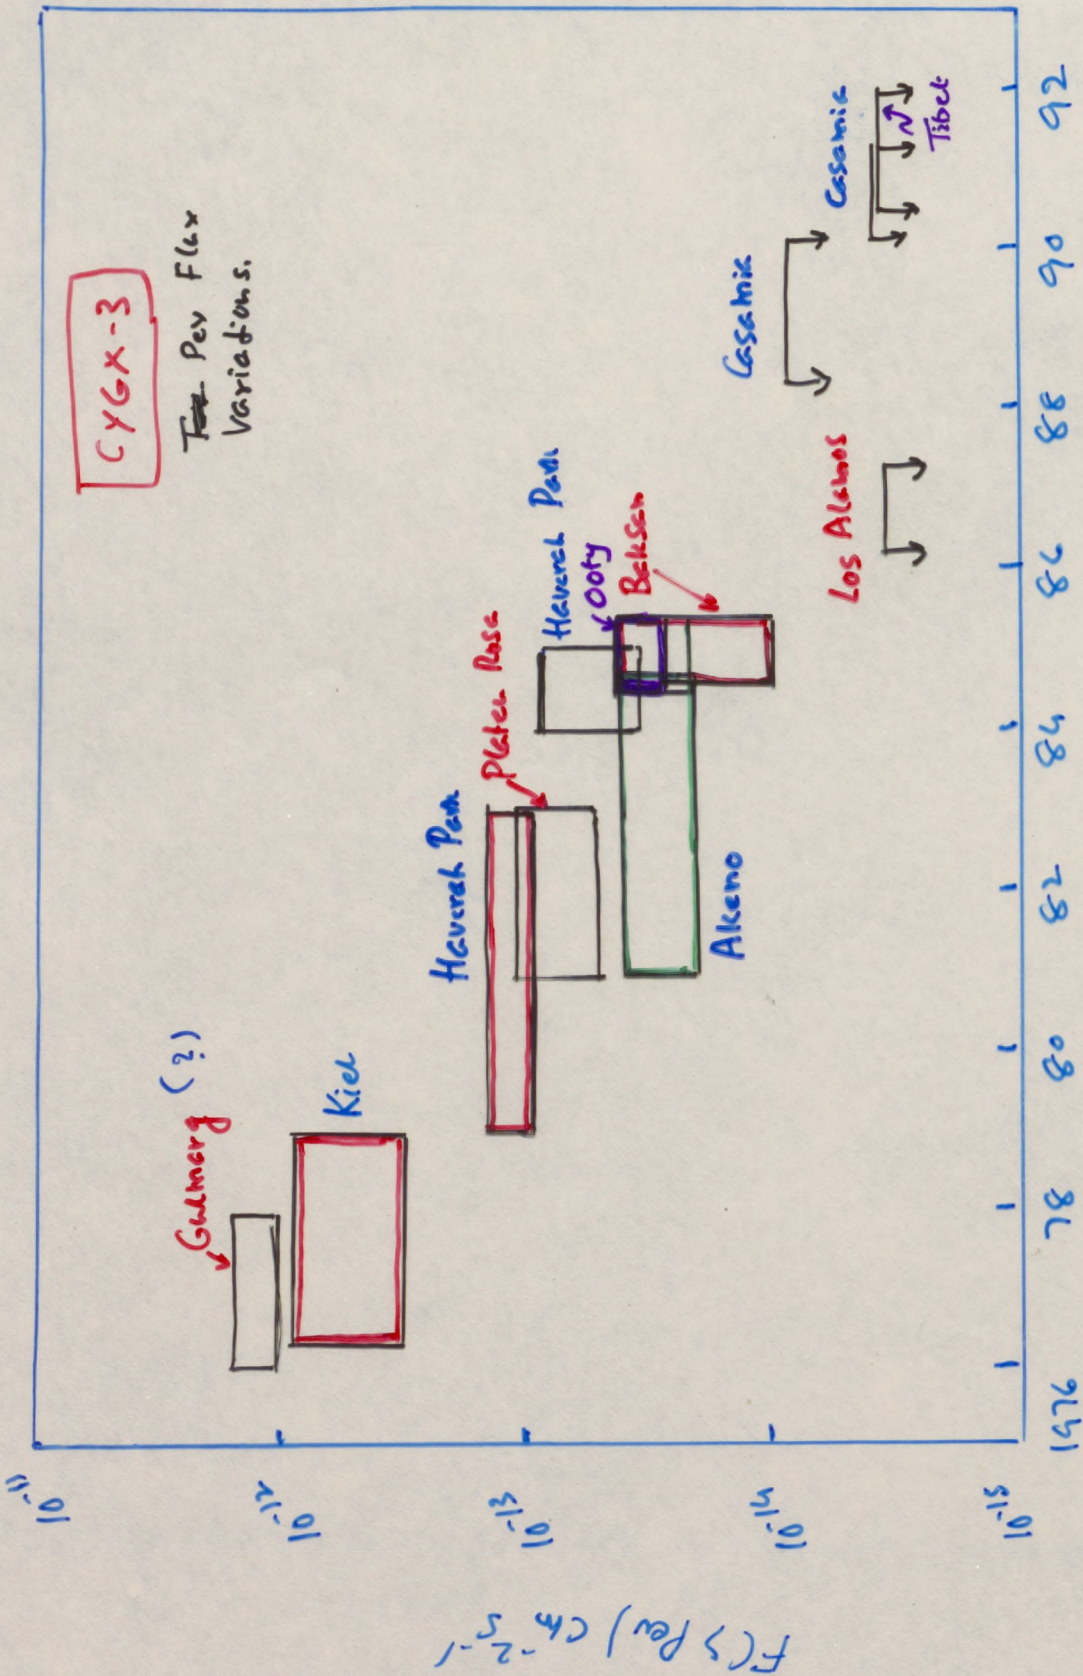 CYGX-3
Pev Flux
Variations.
Gulmarg (?)
Kiel
Haverah Park
Plateu Rosa
Haverah Park
Ooty
Baksan
Akeno
Los Alamos
Casamia
Casamia
Tibet
F(> Pev) cm⁻² s⁻¹
10⁻¹¹
10⁻¹²
10⁻¹³
10⁻¹⁴
10⁻¹⁵
1976 78 80 82 84 86 88 90 92